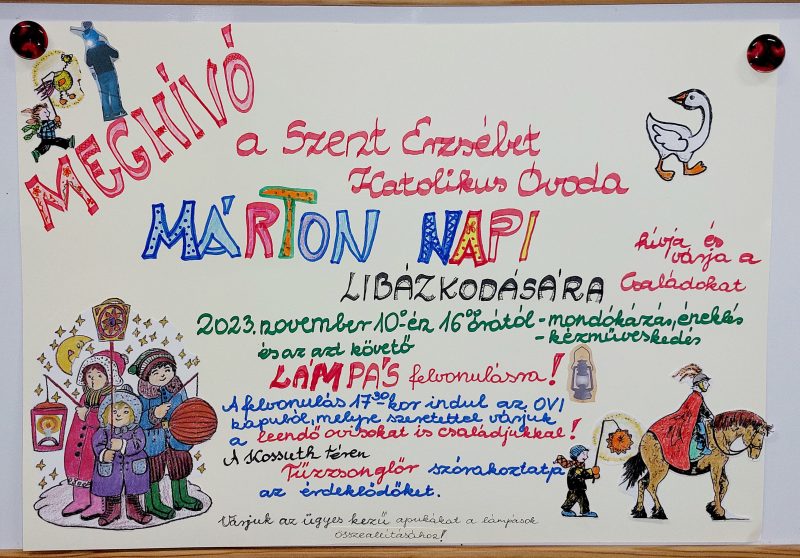 MEGHÍVÓ
a Szent Erzsébet
Katolikus Óvoda
MÁRTON NAPI
hívja és
várja a
Családokat
LIBÁZKODÁSÁRA
2023. november 10-én 16 órától - mondókázás, éneklés
- kézműveskedés
és az azt követő
LÁMPÁS felvonulásra!
A felvonulás 17 30 kor indul az OVI
kapuból, melyre szeretettel várjuk
a leendő ovisokat is családjukkal!
A Kossuth téren
Tűzzsonglőr szórakoztatja
az érdeklődőket.
Várjuk az ügyes kezű apukákat a lámpások
összeállításához!